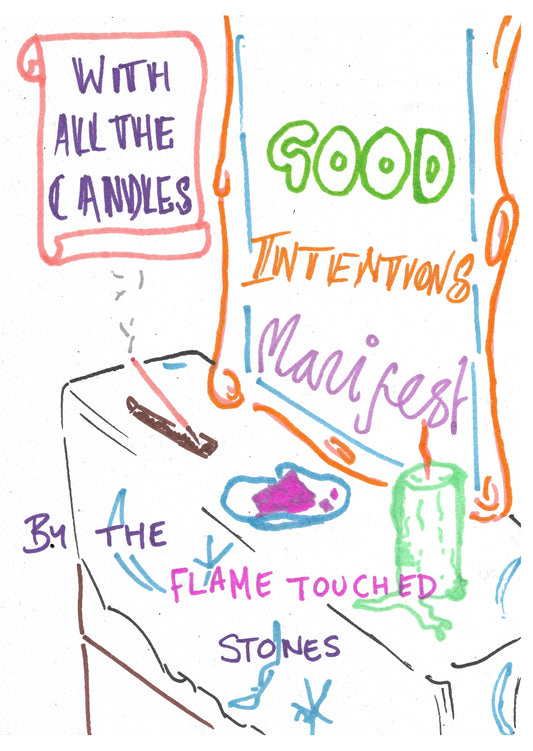 WITH
ALL THE
CANDLES
GOOD
INTENTIONS
Manifest
BY THE
FLAME TOUCHED
STONES